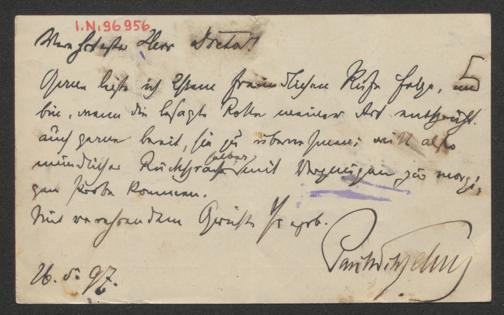 I.N. 96956
Verehrtester Herr Doctor!
Gerne leiste ich Ihrem freundlichen Rufe Folge, und
bin, wenn die besagte Rolle meiner Art entspricht
auch gerne bereit, sie zu übernehmen; will also
mündlicher Rücksprache halber mit Vergnügen zur morgi-
gen Probe kommen.
Mit verehrendem Ihr ergb.
26. 5. 97.